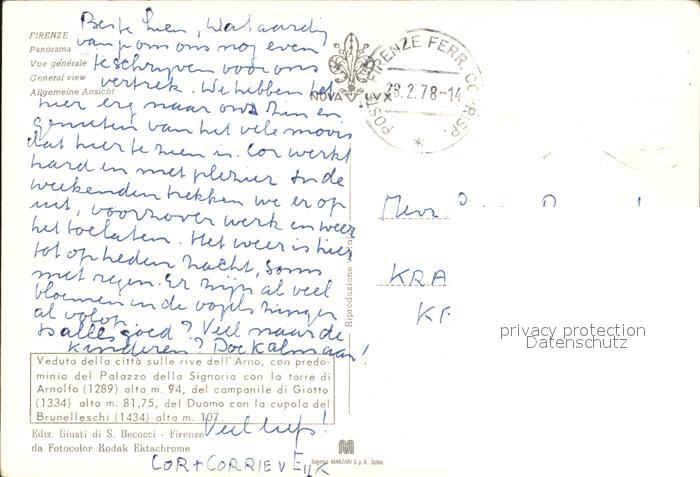 FIRENZE
Panorama
Vue générale
General view
Allgemeine Ansicht
Beste Wataardig
van jom ons nog even
te schrijven voor ons
vertrek. We hebben het
hier erg naar ons zin en
genieten van het vele moois
dat hier te zien is. Cor werkt
hard en met plezier In de
weekenden trekken we er op
uit, voor zover werk en weer
het toelaten. Het weer is hier
tot op heden zacht, soms
met regen. Er zijn al veel
bloemen en de vogels zingen
al volop.
Is alles goed? Veel naar de
kinderen? Doe kalm aan!
Veduta della città sulle rive dell'Arno, con predo-
minio del Palazzo della Signoria con la torre di
Arnolfo (1289) alta m. 94, del campanile di Giotto
(1334) alto m. 81,75, del Duomo con la cupola del
Brunelleschi (1434) alta m. 107.
Veel liefs!
Ediz. Giusti di S. Becocci - Firenze
da Fotocolor Kodak Ektachrome
COR + CORRIE V
NOVA LVX
POSTE FIRENZE FERR. CORRISP.
28.2.78-14
Mevr.
KRA
KR
Riproduzione
privacy protection
Datenschutz
M
MARZARI S.p.A. Schio